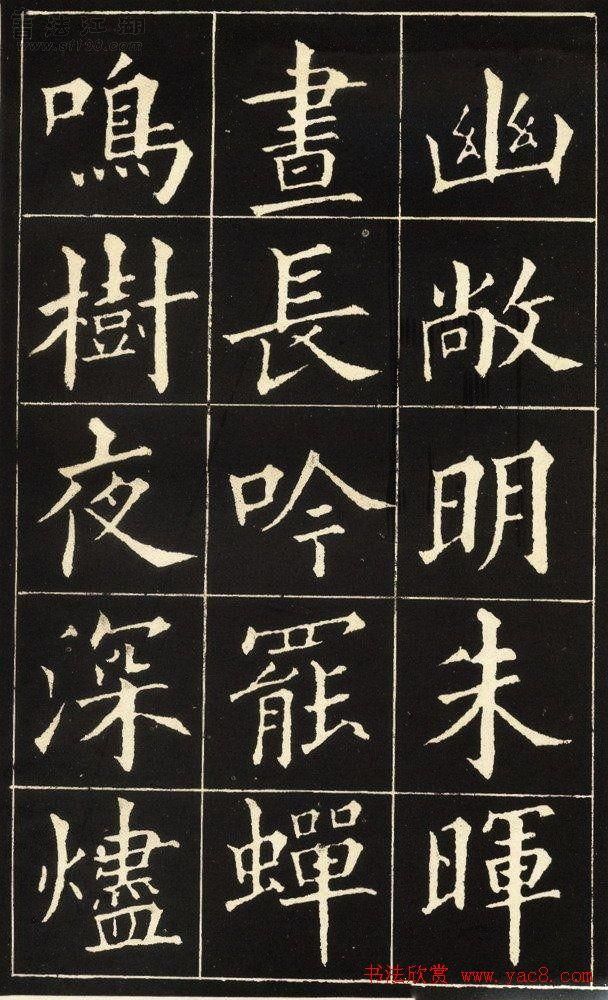 幽敞明朱暉
晝長吟罷蟬
鳴樹夜深燼
书法江湖
书法欣赏 www.yac8.com